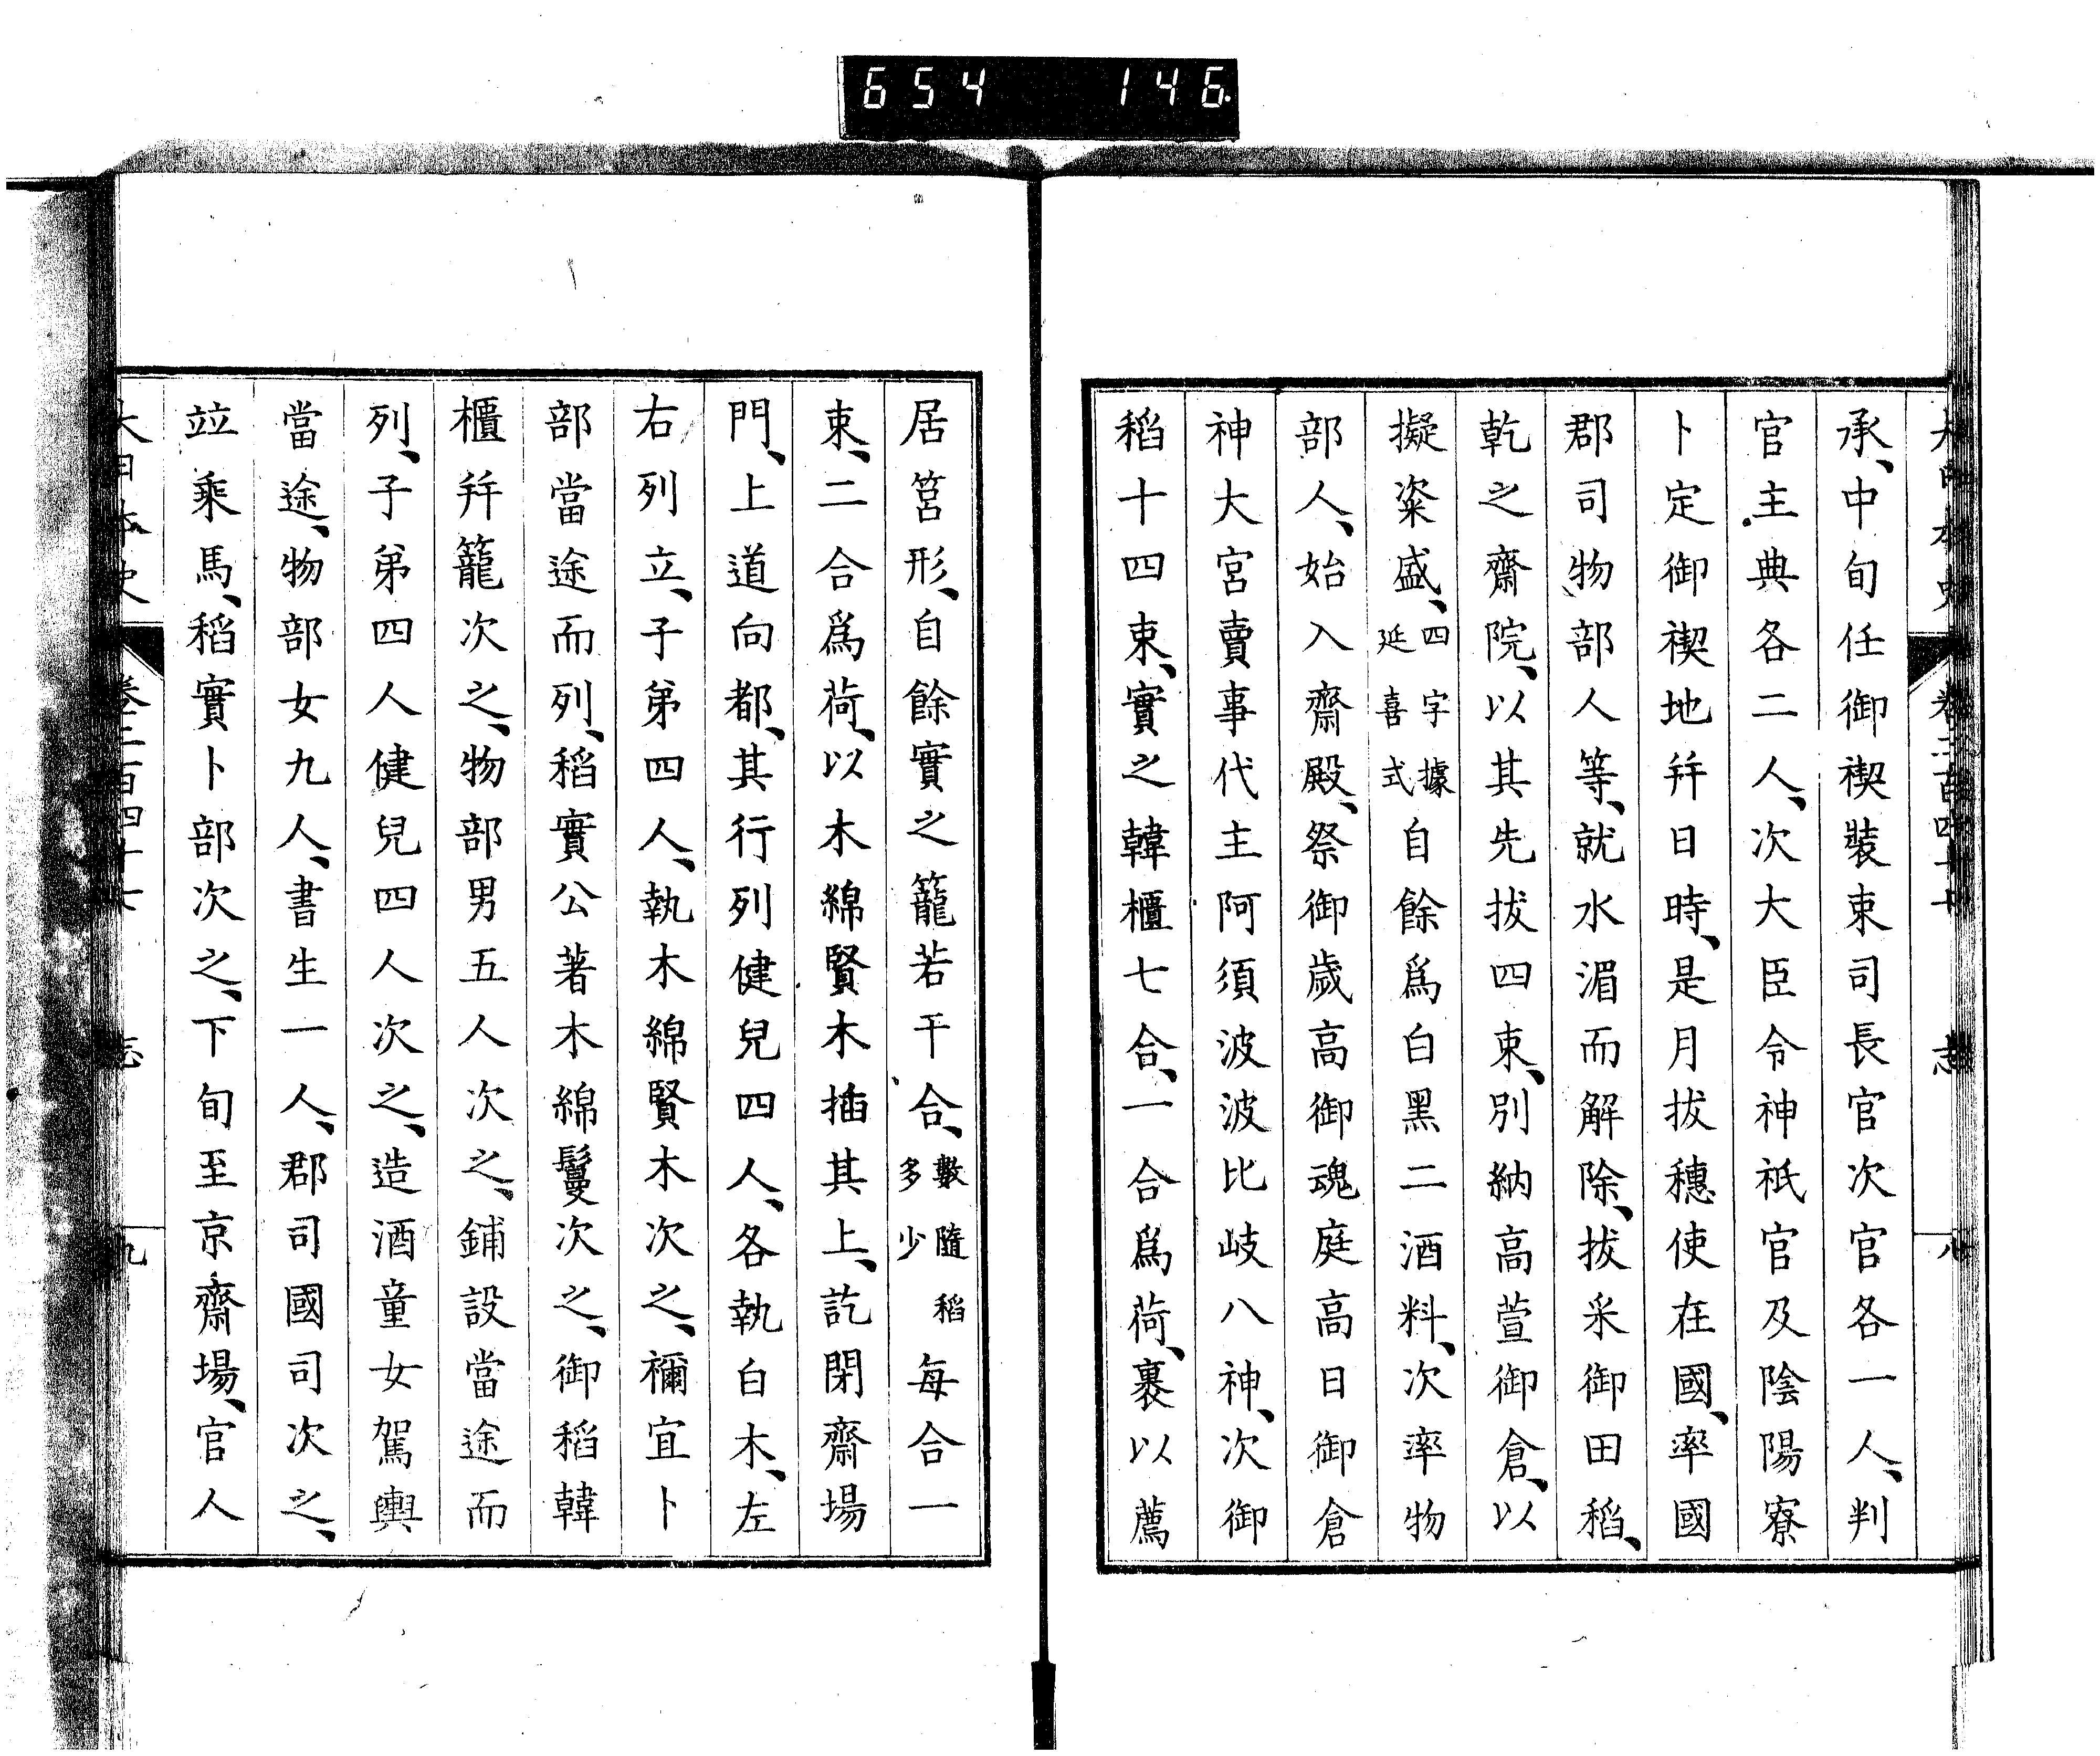 654 146
大日本史 卷二百四十七 志 八
承、中旬任御禊裝束司長官次官各一人、判
官主典各二人、次大臣令神祇官及陰陽寮
卜定御禊地幷日時、是月拔穗使在國、率國
郡司物部人等、就水湄而解除、拔采御田稻、
乾之齋院、以其先拔四束、別納高萱御倉、以
擬粢盛、四字據延喜式自餘爲白黑二酒料、次率物
部人、始入齋殿、祭御歲高御魂庭高日御倉
神大宮賣事代主阿須波波比岐八神、次御
稻十四束、實之韓櫃七合、一合爲荷、裹以薦
居筥形、自餘實之籠若干合、數隨稻多少每合一
束、二合爲荷、以木綿賢木插其上、訖閉齋場
門、上道向都、其行列健兒四人、各執白木、左
右列立、子弟四人、執木綿賢木次之、禰宜卜
部當途而列、稻實公著木綿鬘次之、御稻韓
櫃幷籠次之、物部男五人次之、鋪設當途而
列、子弟四人健兒四人次之、造酒童女駕輿
當途、物部女九人、書生一人、郡司國司次之、
竝乘馬、稻實卜部次之、下旬至京齋場、官人
大日本史 卷二百四十七 志 九